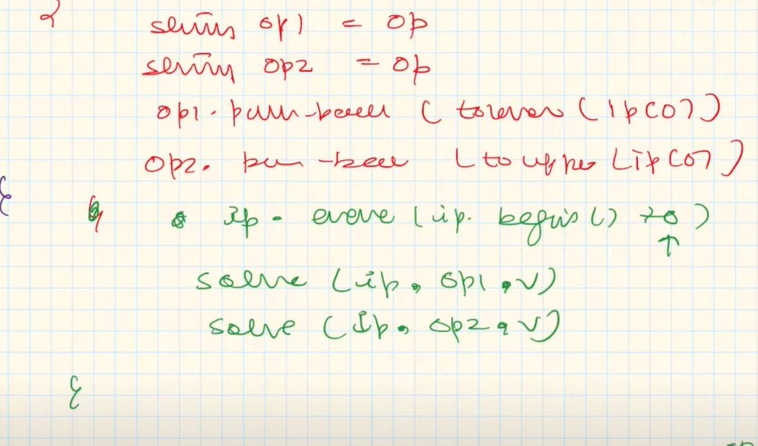 string op1 = op
string op2 = op
op1.push-back (tolower(ip[0])
op2.push-back (toupper(ip[0])
ip.erase(ip.begin()+0)
↑
solve (ip, op1, v)
solve (Ip, op2, v)
}